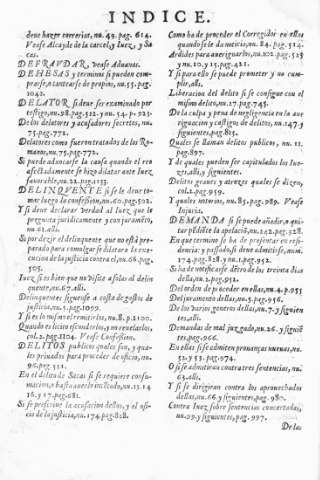 INDICE.
deue hazer conerlos, nu. 43. pag. 614.
Vease Alcayde de la carcel, y Iuez, y Sa
cas.
DEFRAVDAR, vease Aduanas.
DEHESAS y terminos si pueden com-
prarse, o tantearse de propios, nu. 55. pag.
1042.
DELATOR si deue ser examinado por
testigo, nu. 98. pag. 522. y nu. 54. p. 923.
De los delatores y acusadores secretos, nu.
75. pag. 772.
Delatores como fueron tratados de los Ro-
manos, nu. 75. pag. 772.
Si puede adoptarse la causa quando el reo
afectadamente se hizo delatar ante Iuez
fauorable, nu. 22. pag. 133.
DELINQVENTE si se le deue to-
mar luego la confession, nu. 60. pag. 502.
Y si deue declarar verdad al Iuez que le
pregunta juridicamente y con juramẽto,
nu. 61. alli.
Si por dezir el delinquente que no està pre-
parado para comulgar se dilatara la exe-
cucion de la justicia contra el, nu. 66. pag.
505.
Iuez si es bien que no visite a solas al delin
quente, nu. 67. alli.
Delinquentes siguese a costa de gastos de
justicia, nu. 5. pag. 1099.
Y si es lo mismo el reo limpio, nu. 8. p. 2100.
Quando es licito esconderlos, y no reuelarlos,
col. 2. pag. 1104. Vease Confession.
DELITOS publicos quales son, y qua-
les priuados para proceder de oficio, nu.
96. pag. 521.
En el delito de Sacas si se requiere consu-
macion, o basta auerlo intẽtado, nu. 13. 14
16. y 17. pag. 681.
Si se prescriue la acusacion dellos, y el ofi-
cio de la justicia, nu. 174. pag. 828.
Como ha de proceder el Corregidor en ellos
quando se le da noticia, nu. 84. pag. 514.
Ardides para aueriguarlos, nu. 102. pag. 525
y nu. 10. y 13. pag. 421.
Y si para ello se puede prometer y no cum-
plir, alli.
Liberacion del delito si se configue con el
mismo delito, nu. 27. pag. 745.
De la culpa y pena de negligencia en la aue
riguacion y castigo de delitos, nu. 147. y
siguientes, pag. 815.
Quales se llaman delitos publicos, nu. 11.
pag. 897.
Y de quales pueden ser capitulados los Iue-
zes, alli, y siguientes.
Delitos graues y atrozes quales se dizen,
col. 2. pag. 959.
Y quales interior, nu. 85. pag. 989. Vease
Injuria.
DEMANDA si se puede añadir, o qui-
tar pẽdiẽte la apelacion, nu. 142. pag. 328.
En que termino se ha de presentar en resi-
dencia; y passado si deue admitirse, num.
174. pag. 828. y nu. 1. pag. 951.
Si ha de notificarse dẽtro de los treinta dias
della, nu. 2. pag. 951.
Del orden de proceder en ellas, nu. 4. p. 955
Del juramento dellas, nu. 5. pag. 956.
De los varios generos dellas, nu. 7. y siguien
tes, alli.
Demandas de mal juzgado, nu. 26. y siguiẽ
tes, pag. 966.
En ellas si se admiten prouanças nueuas, nu.
52. y 53. pag. 974.
O si se admitiran contra tres sentencias, nu.
63. alli.
Y si se dirigiran contra los aprouechados
dellas, nu. 66 y siguientes, pag. 980.
Contra Iuez sobre sentencias concertadas,
nu. 99. y siguientes, pag. 997.
De las